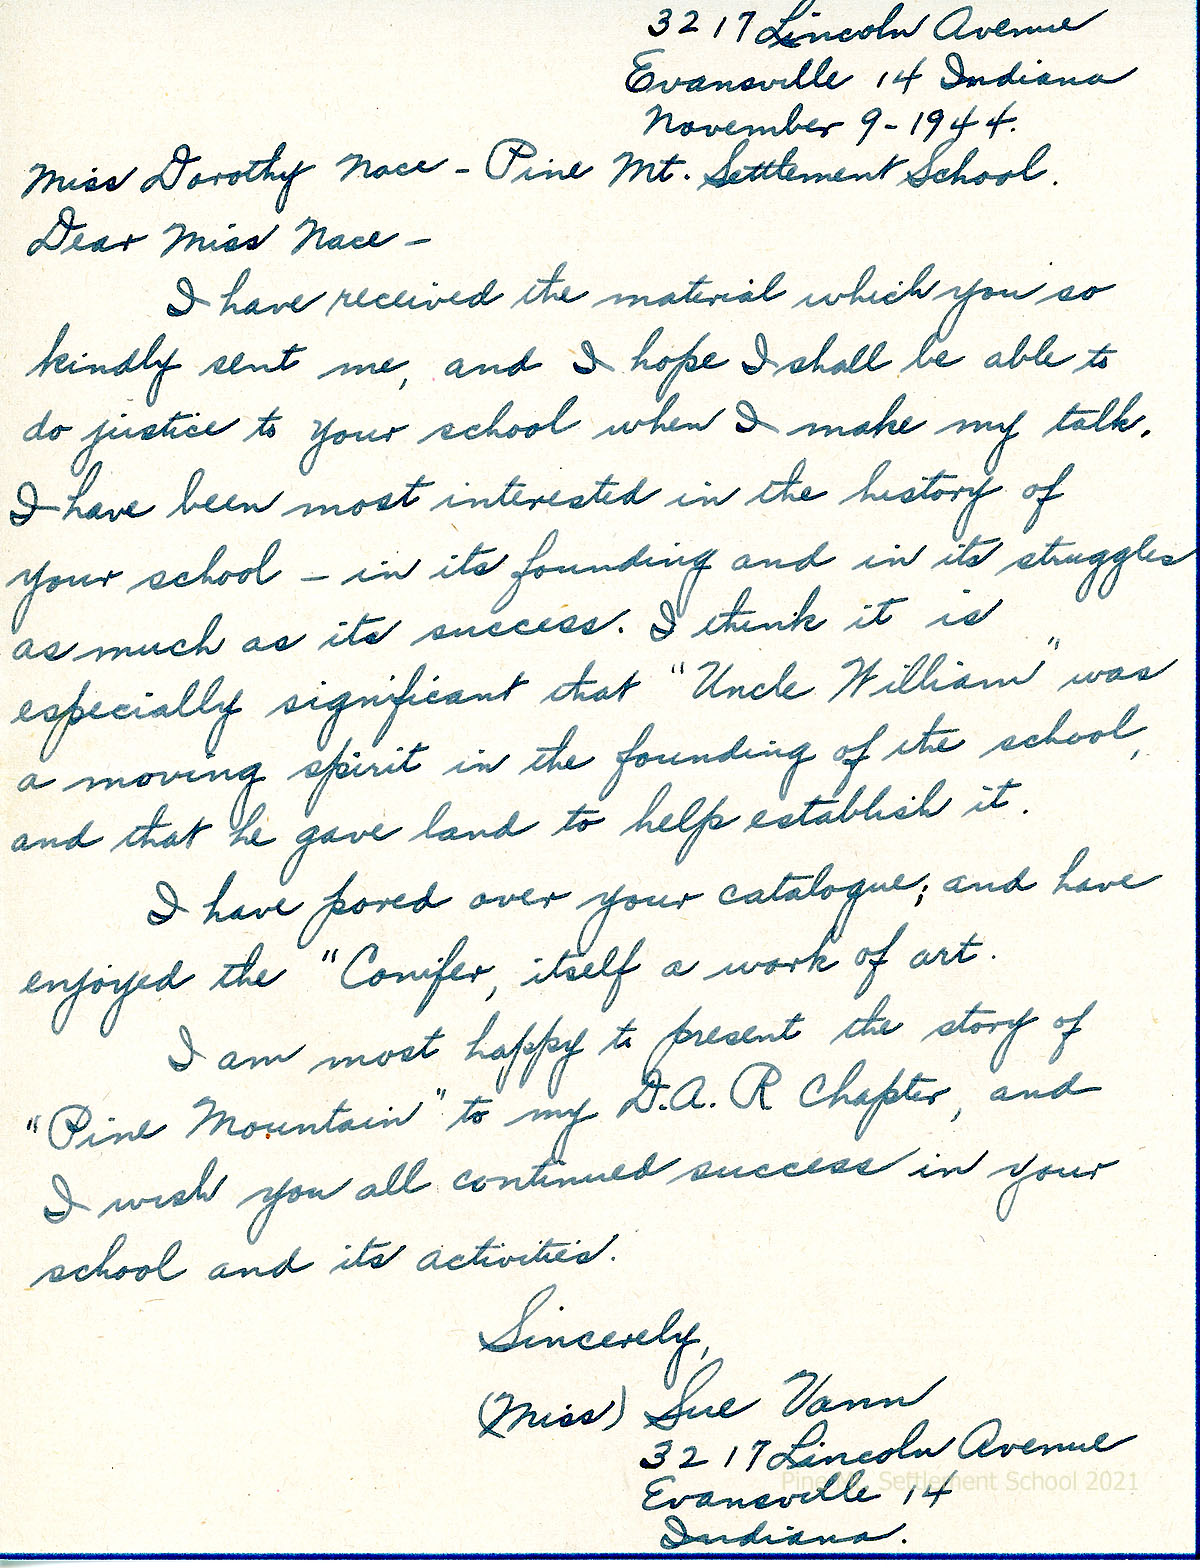 3217 Lincoln Avenue
Evansville 14 Indiana
November 9-1944.
Miss Dorothy Nace - Pine Mt. Settlement School.
Dear Miss Nace -
I have received the material which you so
kindly sent me, and I hope I shall be able to
do justice to your school when I make my talk.
I have been most interested in the history of
your school - in its founding and in its struggles
as much as its success. I think it is
especially significant that "Uncle William" was
a moving spirit in the founding of the school,
and that he gave land to help establish it.
I have pored over your catalogue; and have
enjoyed the "Conifer, itself a work of art.
I am most happy to present the story of
"Pine Mountain" to my D.A.R Chapter, and
I wish you all continued success in your
school and its activities.
Sincerely,
(Miss) Sue Vann
3217 Lincoln Avenue
Pine Mt. Settlement School 2021
Evansville 14
Indiana.